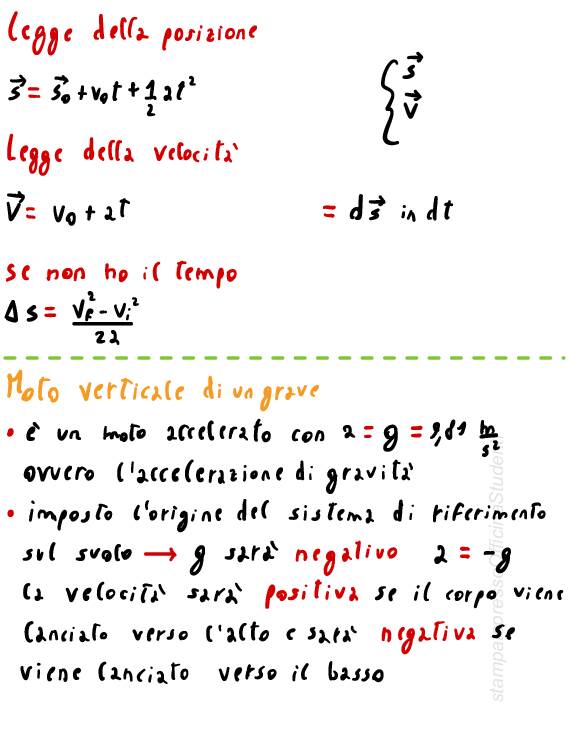 Legge della posizione
s⃗ = s⃗₀ + v₀t + 1/2 at²
{ s⃗
v⃗
Legge della velocità
v⃗ = v₀ + at = ds⃗ in dt
se non ho il tempo
Δs = (v_f² - v_i²)/2a
Moto verticale di un grave
• è un moto accelerato con a = g = 9,81 m/s²
ovvero l'accelerazione di gravità
• imposto l'origine del sistema di riferimento
sul suolo → g sarà negativo a = -g
la velocità sarà positiva se il corpo viene
lanciato verso l'alto e sarà negativa se
viene lanciato verso il basso